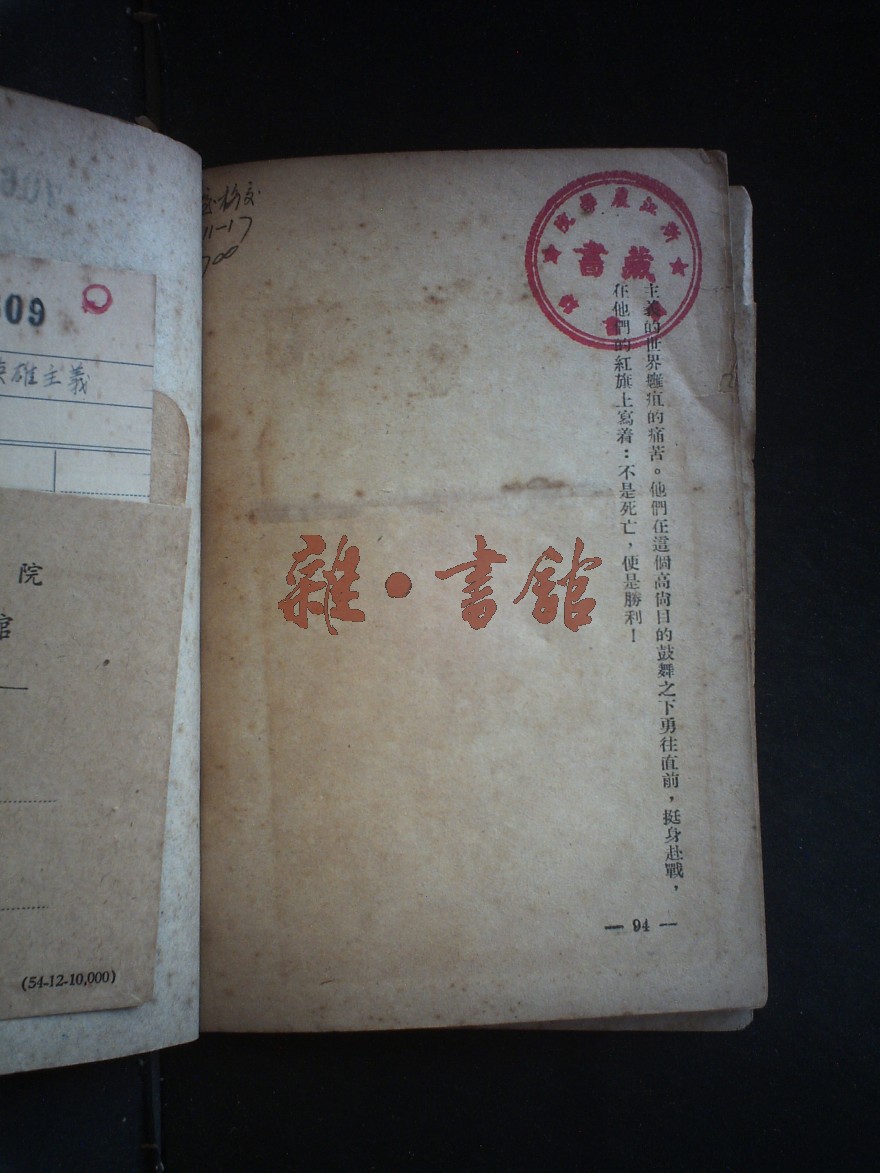 主義的世界癰疽的痛苦。他們在這個高尚目的鼓舞之下勇往直前，挺身赴戰，
在他們的紅旗上寫着：不是死亡，便是勝利！
— 94 —
浙江農學院
藏書
圖書館
雜·書館
11-17
09
英雄主義
院
館
(54-12-10,000)